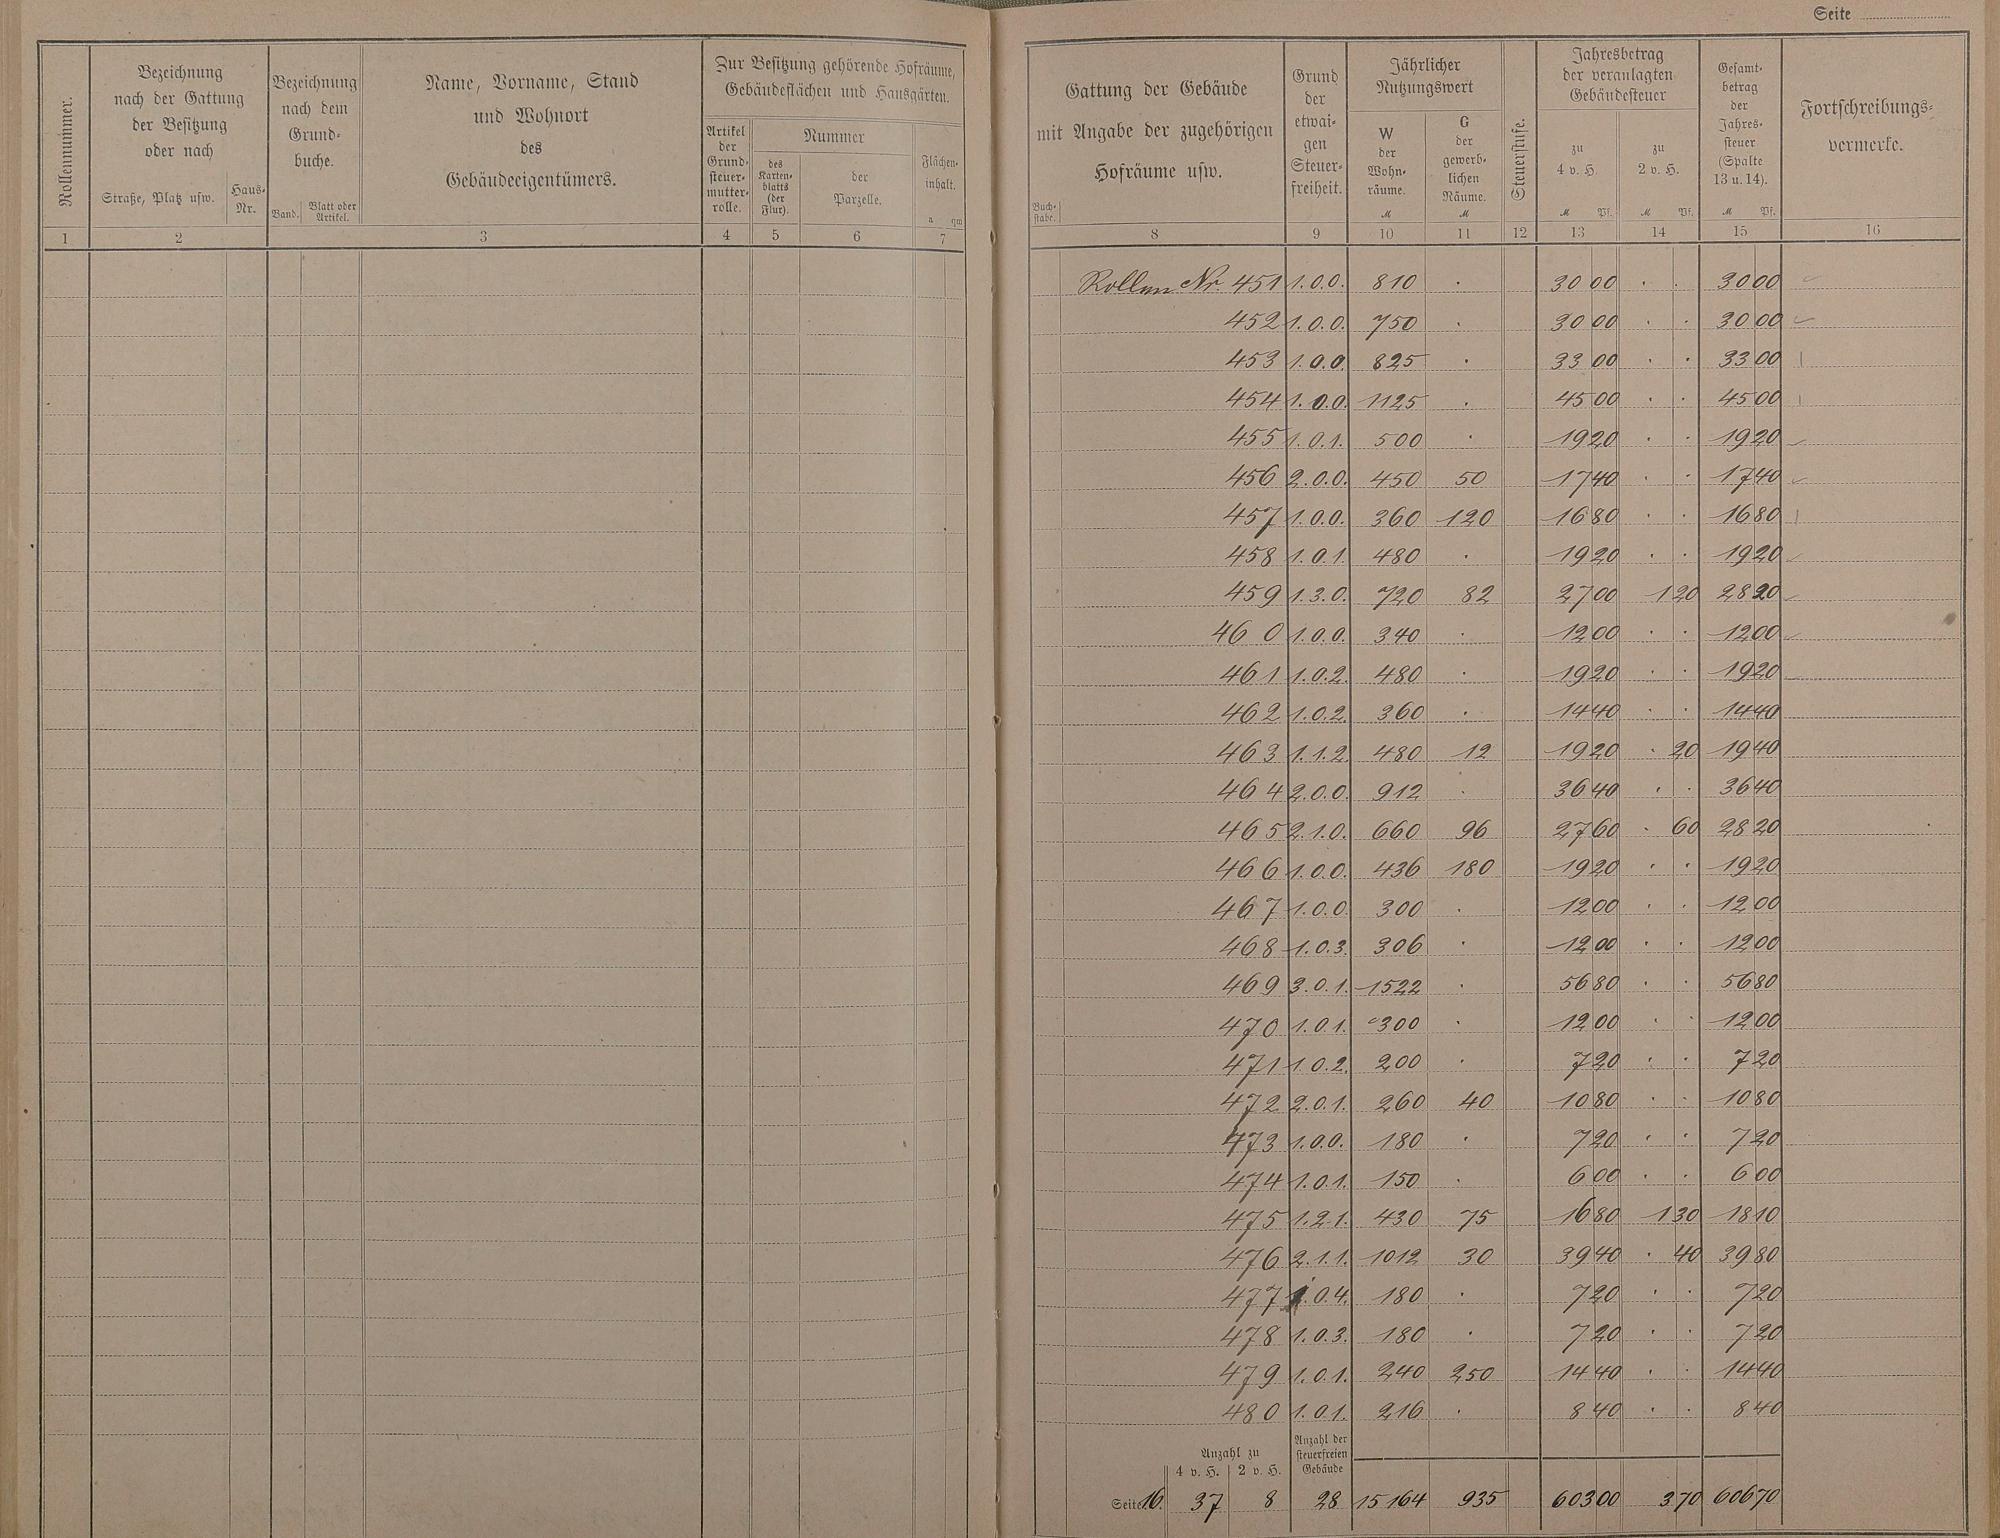 Seite
Rollennummer.
Bezeichnung
nach der Gattung
der Besitzung
oder nach
Straße, Platz usw.
Haus-
Nr.
Bezeichnung
nach dem
Grund-
buche.
Band.
Blatt oder
Artikel.
Name, Vorname, Stand
und Wohnort
des
Gebäudeeigentümers.
Zur Besitzung gehörende Hofräume,
Gebäudeflächen und Hausgärten.
Artikel
der
Grund-
steuer-
mutter-
rolle.
Nummer
des
Karten-
blatts
(der
Flur).
der
Parzelle.
Flächen-
inhalt.
a qm
1 2 3 4 5 6 7
Gattung der Gebäude
mit Angabe der zugehörigen
Hofräume usw.
Buch-
stabe.
Grund
der
etwai-
gen
Steuer-
freiheit.
Jährlicher
Nutzungswert
W
der
Wohn-
räume.
M
G
der
gewerb-
lichen
Räume.
M
Steuerstufe.
Jahresbetrag
der veranlagten
Gebäudesteuer
zu
4 v. H.
M Pf.
zu
2 v. H.
M Pf.
Gesamt-
betrag
der
Jahres-
steuer
(Spalte
13 u. 14).
M Pf.
Fortschreibungs-
vermerke.
8 9 10 11 12 13 14 15 16
Rollen Nr 451 1.0.0. 810 . 30 00 . . 30 00
452 1.0.0. 750 . 30 00 . . 30 00
453 1.0.0. 825 . 33 00 . . 33 00
454 1.0.0. 1125 . 45 00 . . 45 00
455 1.0.1. 500 . 19 20 . . 19 20
456 2.0.0. 450 50 17 40 . . 17 40
457 1.0.0. 360 120 16 80 . . 16 80
458 1.0.1. 480 . 19 20 . . 19 20
459 1.3.0. 720 82 27 00 1 20 28 20
460 1.0.0. 340 . 12 00 . . 12 00
461 1.0.2. 480 . 19 20 . . 19 20
462 1.0.2. 360 . 14 40 . . 14 40
463 1.1.2. 480 12 19 20 . 20 19 40
464 2.0.0. 912 . 36 40 . . 36 40
465 2.1.0. 660 96 27 60 . 60 28 20
466 1.0.0. 436 180 19 20 . . 19 20
467 1.0.0. 300 . 12 00 . . 12 00
468 1.0.3. 306 . 12 00 . . 12 00
469 3.0.1. 1522 . 56 80 . . 56 80
470 1.0.1. 300 . 12 00 . . 12 00
471 1.0.2. 200 . 7 20 . . 7 20
472 2.0.1. 260 40 10 80 . . 10 80
473 1.0.0. 180 . 7 20 . . 7 20
474 1.0.1. 150 . 6 00 . . 6 00
475 1.2.1. 430 75 16 80 1 30 18 10
476 2.1.1. 1012 30 39 40 . 40 39 80
477 1.0.4. 180 . 7 20 . . 7 20
478 1.0.3. 180 . 7 20 . . 7 20
479 1.0.1. 240 250 14 40 . . 14 40
480 1.0.1. 216 . 8 40 . . 8 40
Anzahl zu
4 v. H. 2 v. H.
Anzahl der
steuerfreien
Gebäude
Seite 16. 37 8 28 15 164 935 603 00 3 70 606 70